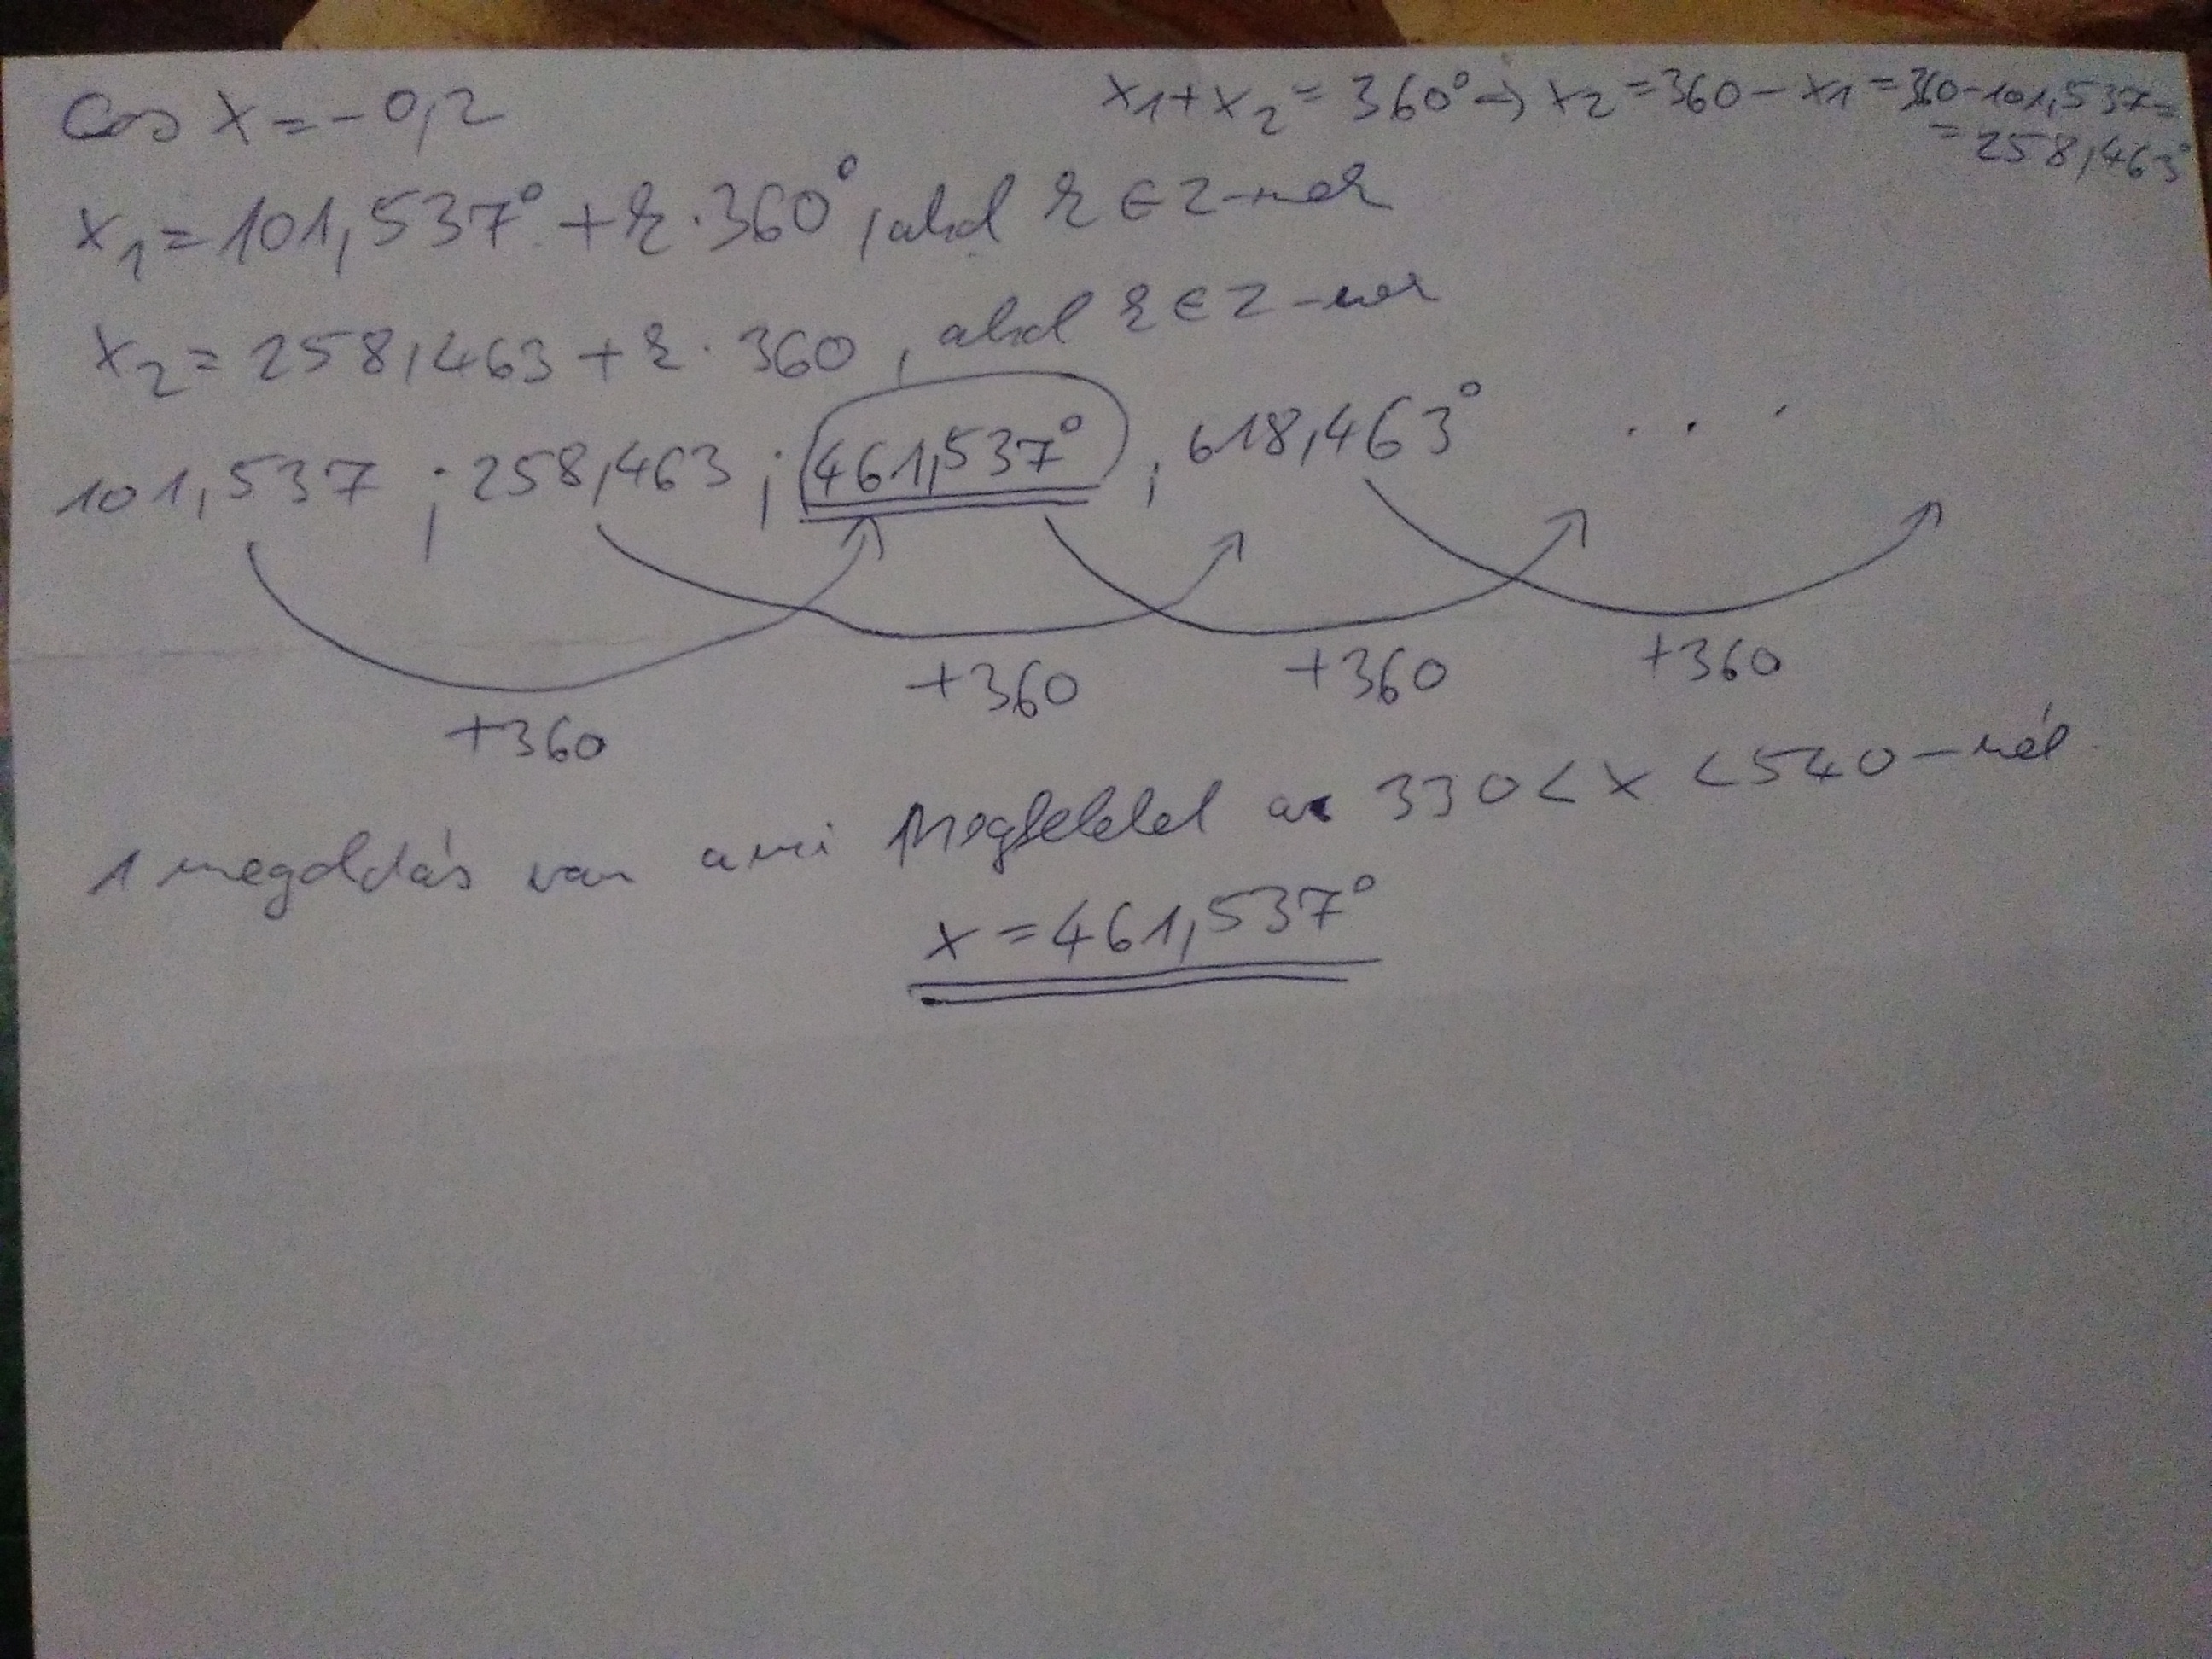 cos x = -0,2
x₁+x₂ = 360° → x₂ = 360 - x₁ = 360-101,537 =
= 258,463°
x₁ = 101,537° + k · 360°, ahol k ∈ Z-nek
x₂ = 258,463 + k · 360, ahol k ∈ Z-nek
101,537 ; 258,463 ; 461,537° , 618,463° . . .
+360 +360 +360 +360
1 megoldás van ami Megfelelel a 330 < x < 540-nél
x = 461,537°